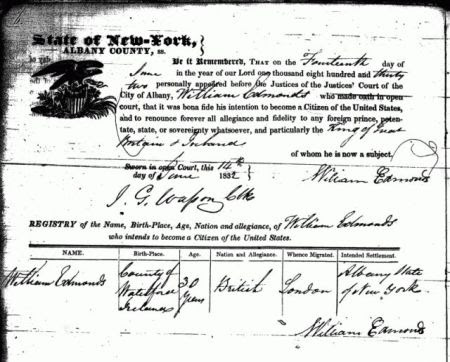 State of New-York,
ALBANY COUNTY, ss.
Be it Remembered, THAT on the Fourteenth day of
June in the year of our Lord one thousand eight hundred and thirty
two personally appeared before the Justices of the Justices' Court of the
City of Albany, William Edmonds who made oath in open
court, that it was bona fide his intention to become a Citizen of the United States,
and to renounce forever all allegiance and fidelity to any foreign prince, poten-
tate, state, or sovereignty whatsoever, and particularly the King of Great
Britain & Ireland
of whom he is now a subject.
Sworn in open Court, this 14th
day of June 1832
William Edmonds
J. G. Wasson Clk
REGISTRY of the Name, Birth-Place, Age, Nation and allegiance, of William Edmonds
who intends to become a Citizen of the United States.
NAME. Birth-Place. Age. Nation and Allegiance. Whence Migrated. Intended Settlement.
William Edmonds County of Waterford Ireland 30 Years British London Albany State of New York.
William Edmonds